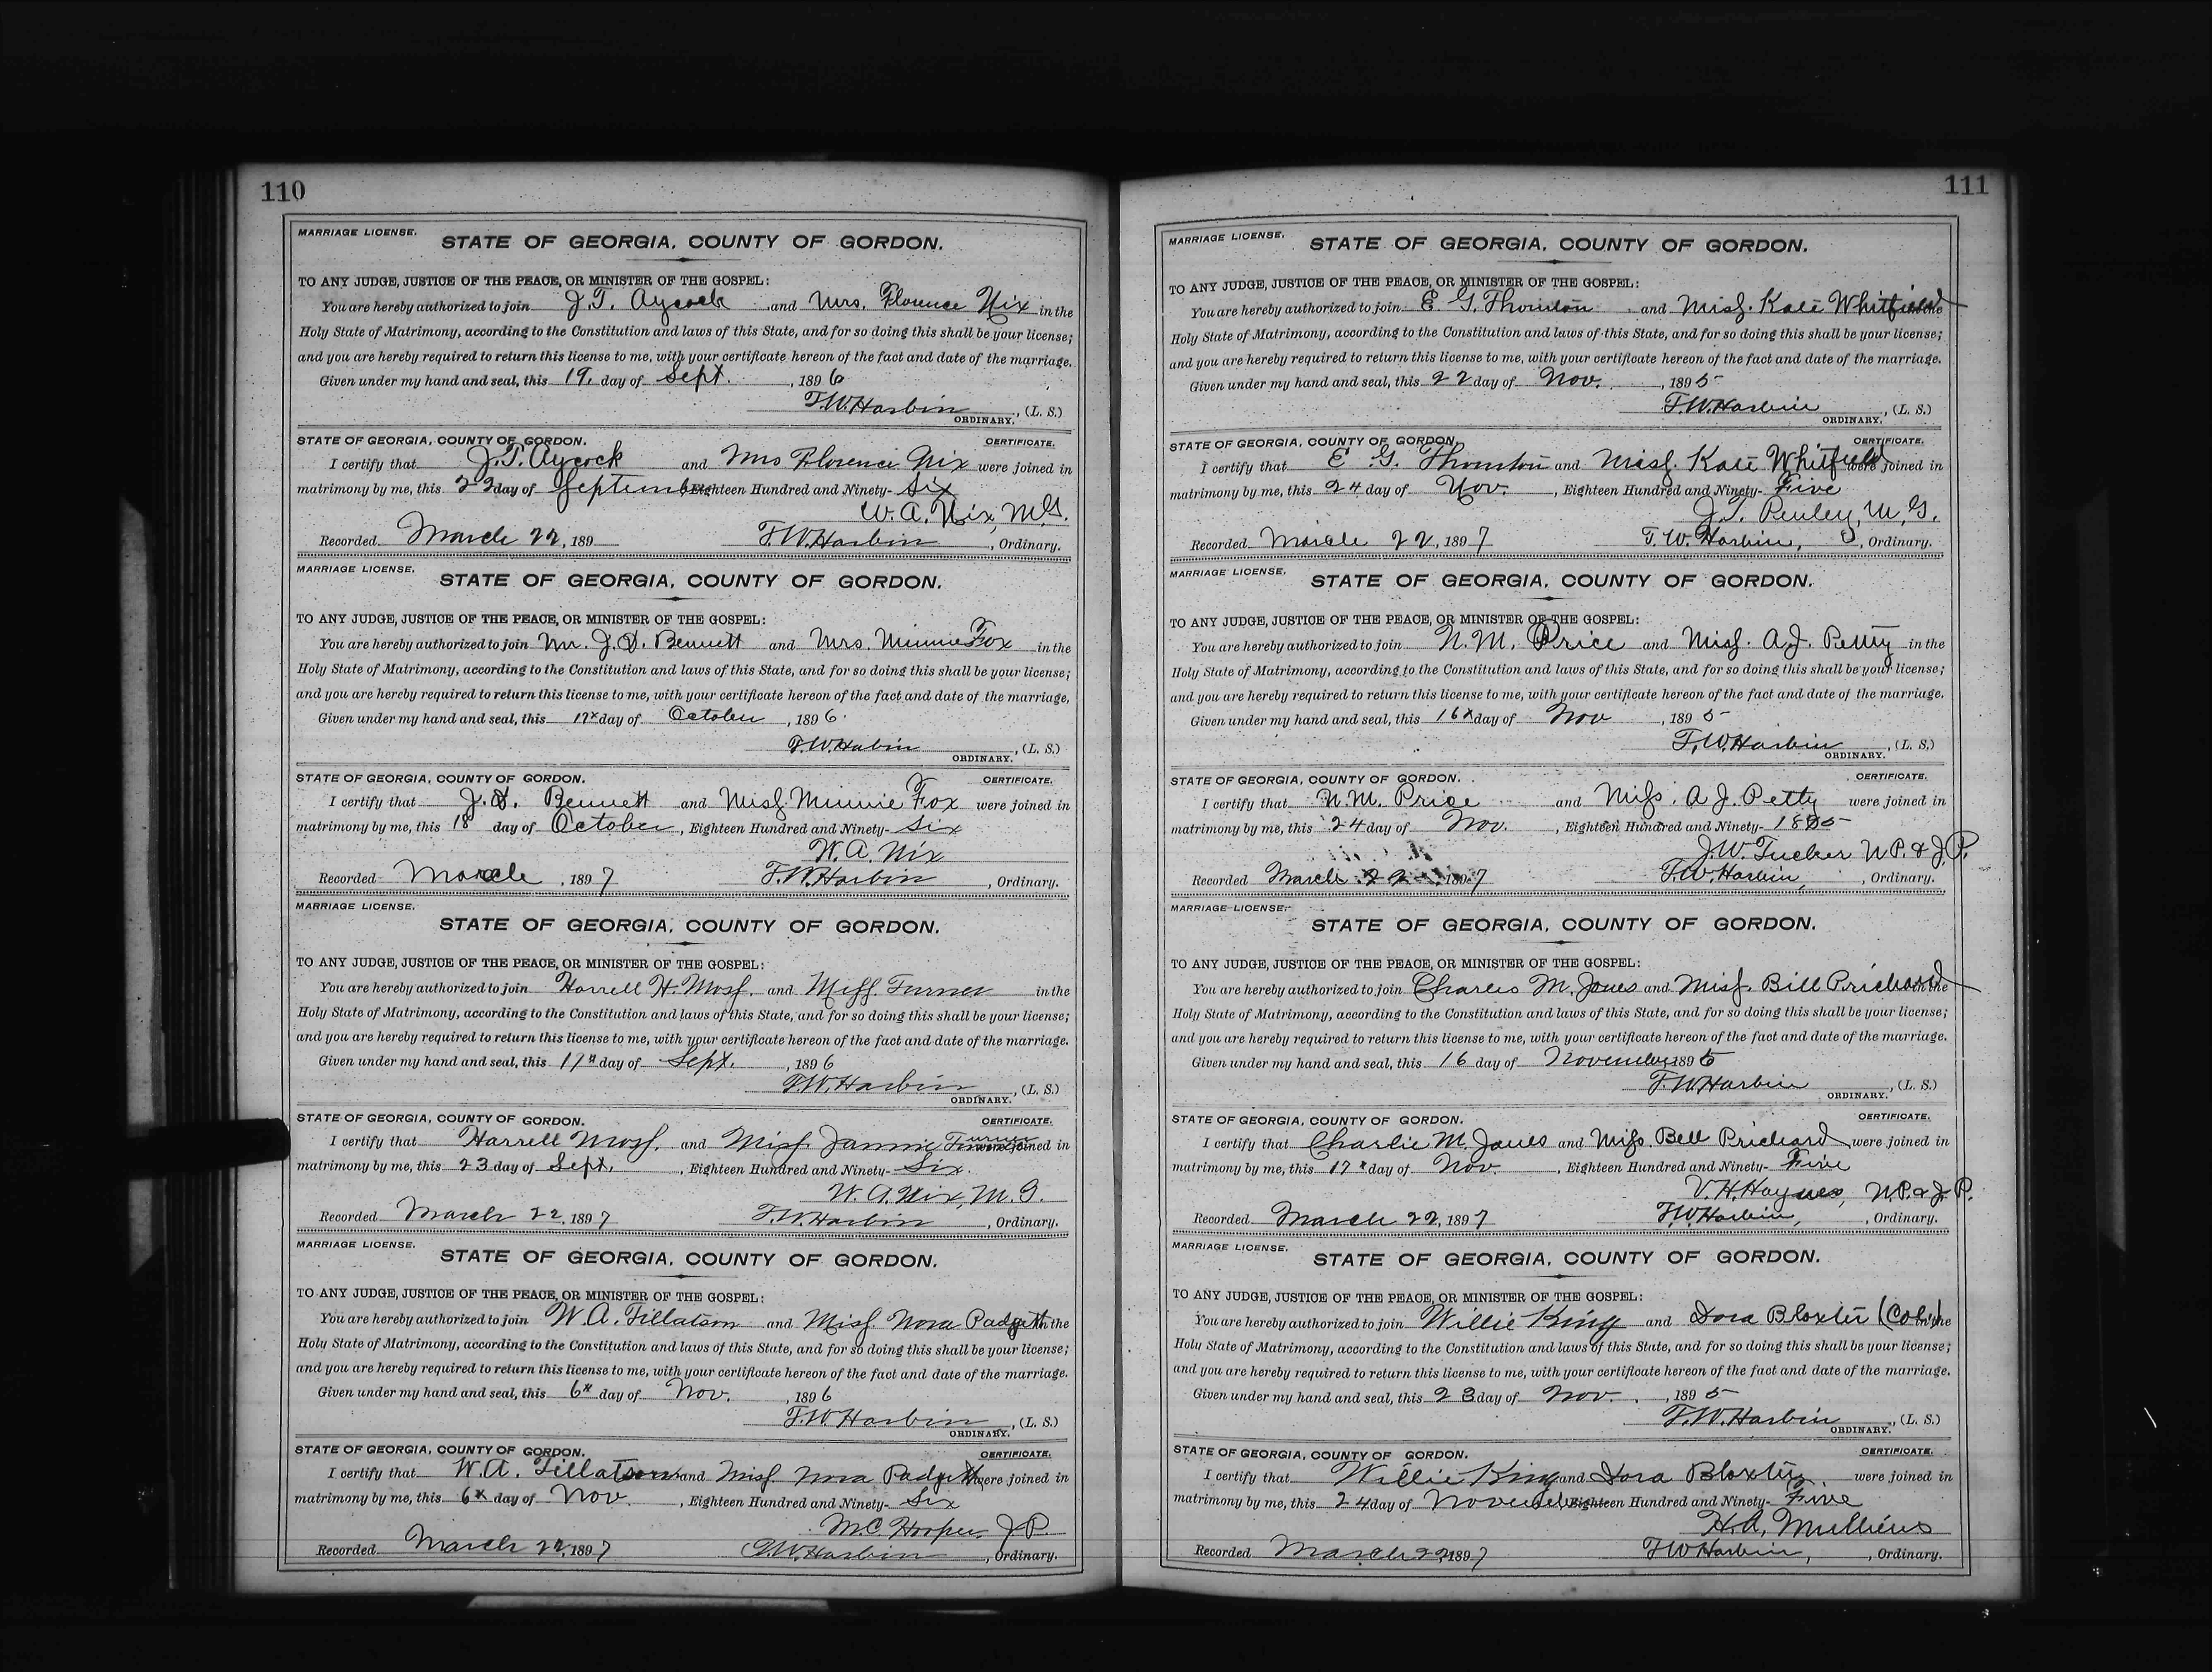 110
MARRIAGE LICENSE.
STATE OF GEORGIA, COUNTY OF GORDON.
TO ANY JUDGE, JUSTICE OF THE PEACE, OR MINISTER OF THE GOSPEL:
You are hereby authorized to join J.T. Aycock and Mrs. Florence Nix in the
Holy State of Matrimony, according to the Constitution and laws of this State, and for so doing this shall be your license;
and you are hereby required to return this license to me, with your certificate hereon of the fact and date of the marriage.
Given under my hand and seal, this 19, day of Sept. , 1896
T.W. Harbin , (L. S.)
ORDINARY.
STATE OF GEORGIA, COUNTY OF GORDON. CERTIFICATE.
I certify that J.T. Aycock and Mrs Florence Nix were joined in
matrimony by me, this 22 day of September Eighteen Hundred and Ninety- Six
W. A. Nix, M.G.
Recorded March 22, 189 T.W. Harbin , Ordinary.
MARRIAGE LICENSE.
STATE OF GEORGIA, COUNTY OF GORDON.
TO ANY JUDGE, JUSTICE OF THE PEACE, OR MINISTER OF THE GOSPEL:
You are hereby authorized to join Mr. J. Bennett and Mrs. Minnie Fox in the
Holy State of Matrimony, according to the Constitution and laws of this State, and for so doing this shall be your license;
and you are hereby required to return this license to me, with your certificate hereon of the fact and date of the marriage.
Given under my hand and seal, this 17x day of October , 1896.
T.W. Habin , (L. S.)
ORDINARY.
STATE OF GEORGIA, COUNTY OF GORDON. CERTIFICATE.
I certify that J. Bennett and Miss Minnie Fox were joined in
matrimony by me, this 18 day of October , Eighteen Hundred and Ninety- Six
W. A. Nix
Recorded March , 1897 T.W. Harbin , Ordinary.
MARRIAGE LICENSE.
STATE OF GEORGIA, COUNTY OF GORDON.
TO ANY JUDGE, JUSTICE OF THE PEACE, OR MINISTER OF THE GOSPEL:
You are hereby authorized to join Harrell H. Moss. and Miss. Turner in the
Holy State of Matrimony, according to the Constitution and laws of this State, and for so doing this shall be your license;
and you are hereby required to return this license to me, with your certificate hereon of the fact and date of the marriage.
Given under my hand and seal, this 17x day of Sept. , 1896
T.W. Harbin , (L. S.)
ORDINARY.
STATE OF GEORGIA, COUNTY OF GORDON. CERTIFICATE.
I certify that Harrell Moss. and Miss. Jannie Turner were joined in
matrimony by me, this 23 day of Sept. , Eighteen Hundred and Ninety- Six.
W. A. Nix, M. G.
Recorded March 22, 1897 T.W. Harbin , Ordinary.
MARRIAGE LICENSE.
STATE OF GEORGIA, COUNTY OF GORDON.
TO ANY JUDGE, JUSTICE OF THE PEACE, OR MINISTER OF THE GOSPEL:
You are hereby authorized to join W. A. Tillatson and Miss. Nora Padgett in the
Holy State of Matrimony, according to the Constitution and laws of this State, and for so doing this shall be your license;
and you are hereby required to return this license to me, with your certificate hereon of the fact and date of the marriage.
Given under my hand and seal, this 6x day of Nov. , 1896
T.W. Harbin , (L. S.)
ORDINARY.
STATE OF GEORGIA, COUNTY OF GORDON. CERTIFICATE.
I certify that W. A. Tillatson and Miss. Nora Padgett were joined in
matrimony by me, this 6x day of Nov. , Eighteen Hundred and Ninety- Six
M. C. Hooper J. P.
Recorded March 22, 1897 T.W. Harbin , Ordinary.
111
MARRIAGE LICENSE.
STATE OF GEORGIA, COUNTY OF GORDON.
TO ANY JUDGE, JUSTICE OF THE PEACE, OR MINISTER OF THE GOSPEL:
You are hereby authorized to join E G. Thornton and Miss. Kate Whitfield in the
Holy State of Matrimony, according to the Constitution and laws of this State, and for so doing this shall be your license;
and you are hereby required to return this license to me, with your certificate hereon of the fact and date of the marriage.
Given under my hand and seal, this 22 day of Nov. , 1895
T.W. Harbin , (L. S.)
ORDINARY.
STATE OF GEORGIA, COUNTY OF GORDON. CERTIFICATE.
I certify that E. G. Thornton and Miss. Kate Whitfield were joined in
matrimony by me, this 24 day of Nov. , Eighteen Hundred and Ninety- Five
J. T. Penley, M. G.
Recorded March 22, 1897 T. W. Harbin, , Ordinary.
MARRIAGE LICENSE.
STATE OF GEORGIA, COUNTY OF GORDON.
TO ANY JUDGE, JUSTICE OF THE PEACE, OR MINISTER OF THE GOSPEL:
You are hereby authorized to join N. M. Price and Miss. A.J. Petty in the
Holy State of Matrimony, according to the Constitution and laws of this State, and for so doing this shall be your license;
and you are hereby required to return this license to me, with your certificate hereon of the fact and date of the marriage.
Given under my hand and seal, this 16x day of Nov , 1895
T.W. Harbin , (L. S.)
ORDINARY.
STATE OF GEORGIA, COUNTY OF GORDON. CERTIFICATE.
I certify that N. M. Price and Miss. A J. Petty were joined in
matrimony by me, this 24 day of Nov. , Eighteen Hundred and Ninety- 1895
J. W. Tucker N P. & J. P.
Recorded March 22 1897 T.W. Harbin, , Ordinary.
MARRIAGE LICENSE.
STATE OF GEORGIA, COUNTY OF GORDON.
TO ANY JUDGE, JUSTICE OF THE PEACE, OR MINISTER OF THE GOSPEL:
You are hereby authorized to join Charles M. Jones and Miss. Bill Prichard in the
Holy State of Matrimony, according to the Constitution and laws of this State, and for so doing this shall be your license;
and you are hereby required to return this license to me, with your certificate hereon of the fact and date of the marriage.
Given under my hand and seal, this 16 day of November 1895
T.W. Harbin , (L. S.)
ORDINARY.
STATE OF GEORGIA, COUNTY OF GORDON. CERTIFICATE.
I certify that Charlie M. Jones and Miss. Bell Prichard were joined in
matrimony by me, this 17x day of Nov. , Eighteen Hundred and Ninety- Five
V. H. Haynes, N. P. & J. P.
Recorded March 22, 1897 T.W. Harbin, , Ordinary.
MARRIAGE LICENSE.
STATE OF GEORGIA, COUNTY OF GORDON.
TO ANY JUDGE, JUSTICE OF THE PEACE, OR MINISTER OF THE GOSPEL:
You are hereby authorized to join Willie King and Dora Bloxter (Col) in the
Holy State of Matrimony, according to the Constitution and laws of this State, and for so doing this shall be your license;
and you are hereby required to return this license to me, with your certificate hereon of the fact and date of the marriage.
Given under my hand and seal, this 23 day of Nov. , 1895
T.W. Harbin , (L. S.)
ORDINARY.
STATE OF GEORGIA, COUNTY OF GORDON. CERTIFICATE.
I certify that Willie King and Dora Bloxter were joined in
matrimony by me, this 24 day of November Eighteen Hundred and Ninety- Five
H. A.
Recorded March 22 1897 T W Harbin, , Ordinary.